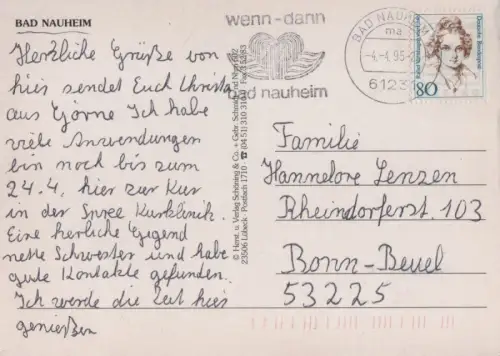 BAD NAUHEIM
Herzliche Grüße von
hier sendet Euch Christa
aus Görne Ich habe
viele Anwendungen
bin noch bis zum
24.4. hier zur Kur
in der Spree Kurklinik.
Eine herliche Gegend
nette Schwester und habe
gute Kontakte gefunden.
Ich werde die Zeit hier
genießen
wenn-dann
bad nauheim
BAD NAUHEIM
ma
-4.-4.95-
6123
Deutsche Bundespost
80
© Herst. u. Verlag Schöning & Co. + Gebr. Schmidt
23506 Lübeck · Postfach 1710 · ☎ (04 51) 310 31
Familie
Hannelore Lenzen
Rheindorferst. 103
Bonn-Beuel
53225